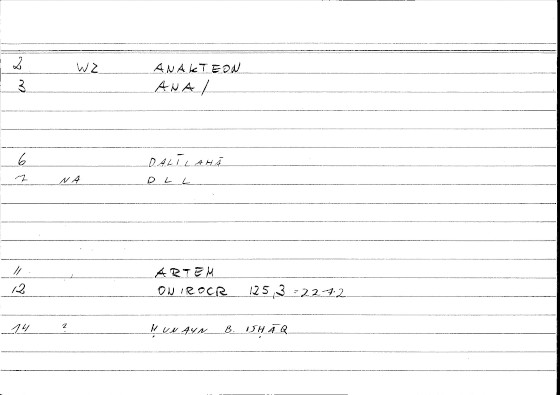 2 WZ ANAKTEON
3 ANA /
6 DALĪLAHĀ
7 NA DLL
11 ARTEM
12 ONIROCR 125,3 = 22-12
14 ? ḤUNAYN B. ISḤĀQ